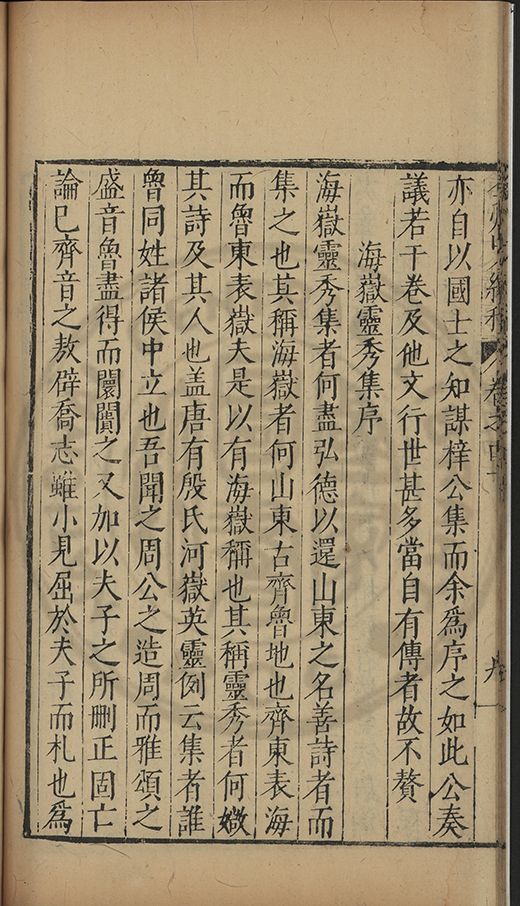 卷之
亦自以國士之知謀梓公集而余爲序之如此公奏
議若干卷及他文行世甚多當自有傳者故不贅
海嶽靈秀集序
海嶽靈秀集者何盡弘德以還山東之名善詩者而
集之也其稱海嶽者何山東古齊魯地也齊東表海
而魯東表嶽夫是以有海嶽稱也其稱靈秀者何媺
其詩及其人也盖唐有殷氏河嶽英靈例云集者誰
魯同姓諸侯中立也吾聞之周公之造周而雅頌之
盛音魯盡得而闤闠之又加以夫子之所刪正固亡
論已齊音之敖辟喬志雖小見屈於夫子而札也爲